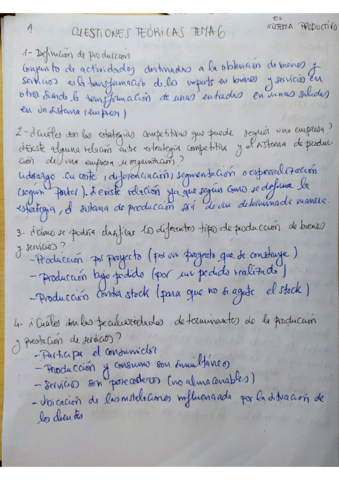 1
CUESTIONES TEÓRICAS TEMA 6
SISTEMA PRODUCTIVO
1- Definición de Producción
Conjunto de actividades destinadas a la obtención de bienes y
servicios o la transformación de los inputs en bienes y servicios en
otros siendo la transformación de unas entradas en unas salidas
en un sistema (empresa)
2- ¿Cuáles son las estrategias competitivas que puede seguir una empresa?
¿Existe alguna relación entre estrategia competitiva y el sistema de produc-
ción de una empresa u organización?
Liderazgo en coste, diferenciación, segmentación o especialización
(según Porter). Existe relación ya que según como se defina la
estrategia, el sistema de producción será de una determinada manera.
3. ¿Cómo se podría clasificar los diferentes tipos de producción de bienes
y servicios?
- Producción por proyecto (por un proyecto que se construye)
- Producción bajo pedido (por un pedido realizado)
- Producción contra stock (para que no se agote el stock)
4- ¿Cuáles son las peculiaridades determinantes de la producción
y prestación de servicios?
- Participa el consumidor
- Producción y consumo son simultáneos
- Servicios son perecederos (no almacenables)
- Ubicación de las instalaciones influenciada por la situación de
los clientes